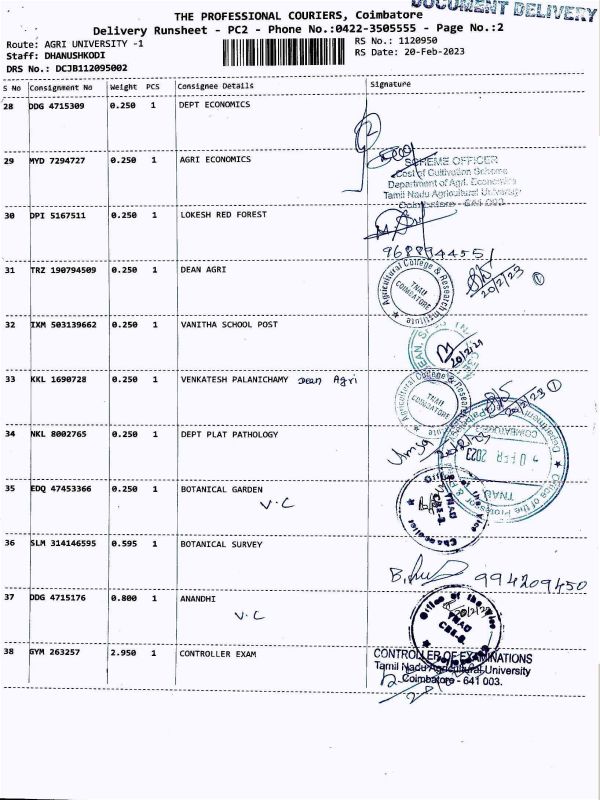 DOCUMENT DELIVERY
THE PROFESSIONAL COURIERS, Coimbatore
Delivery Runsheet - PC2 - Phone No.:0422-3505555 - Page No.:2
Route: AGRI UNIVERSITY -1
Staff: DHANUSHKODI
DRS No.: DCJB112095002
RS No.: 1120950
RS Date: 20-Feb-2023
S No Consignment No Weight PCS Consignee Details Signature
28 DDG 4715309 0.250 1 DEPT ECONOMICS
29 MYD 7294727 0.250 1 AGRI ECONOMICS
SCHEME OFFICER
Cost of Cultivation Scheme
Department of Agri. Economics
Tamil Nadu Agricultural University
Coimbatore - 641 003.
30 DPI 5167511 0.250 1 LOKESH RED FOREST
9688944551
31 TRZ 190794509 0.250 1 DEAN AGRI
Agricultural College & Research Institute
TNAU
COIMBATORE
20/2/23 1
32 IXM 503139662 0.250 1 VANITHA SCHOOL POST
33 KKL 1690728 0.250 1 VENKATESH PALANICHAMY Dean Agri
Agricultural College & Research Institute
TNAU
COIMBATORE
34 NKL 8002765 0.250 1 DEPT PLAT PATHOLOGY
35 EDQ 47453366 0.250 1 BOTANICAL GARDEN
V.C
Office of the Vice Chancellor
TNAU
CBE-3.
36 SLM 314146595 0.595 1 BOTANICAL SURVEY
994209450
37 DDG 4715176 0.800 1 ANANDHI
V.C
Office of the Vice
TNAU
CBE-3.
38 GYM 263257 2.950 1 CONTROLLER EXAM
CONTROLLER OF EXAMINATIONS
Tamil Nadu Agricultural University
Coimbatore - 641 003.